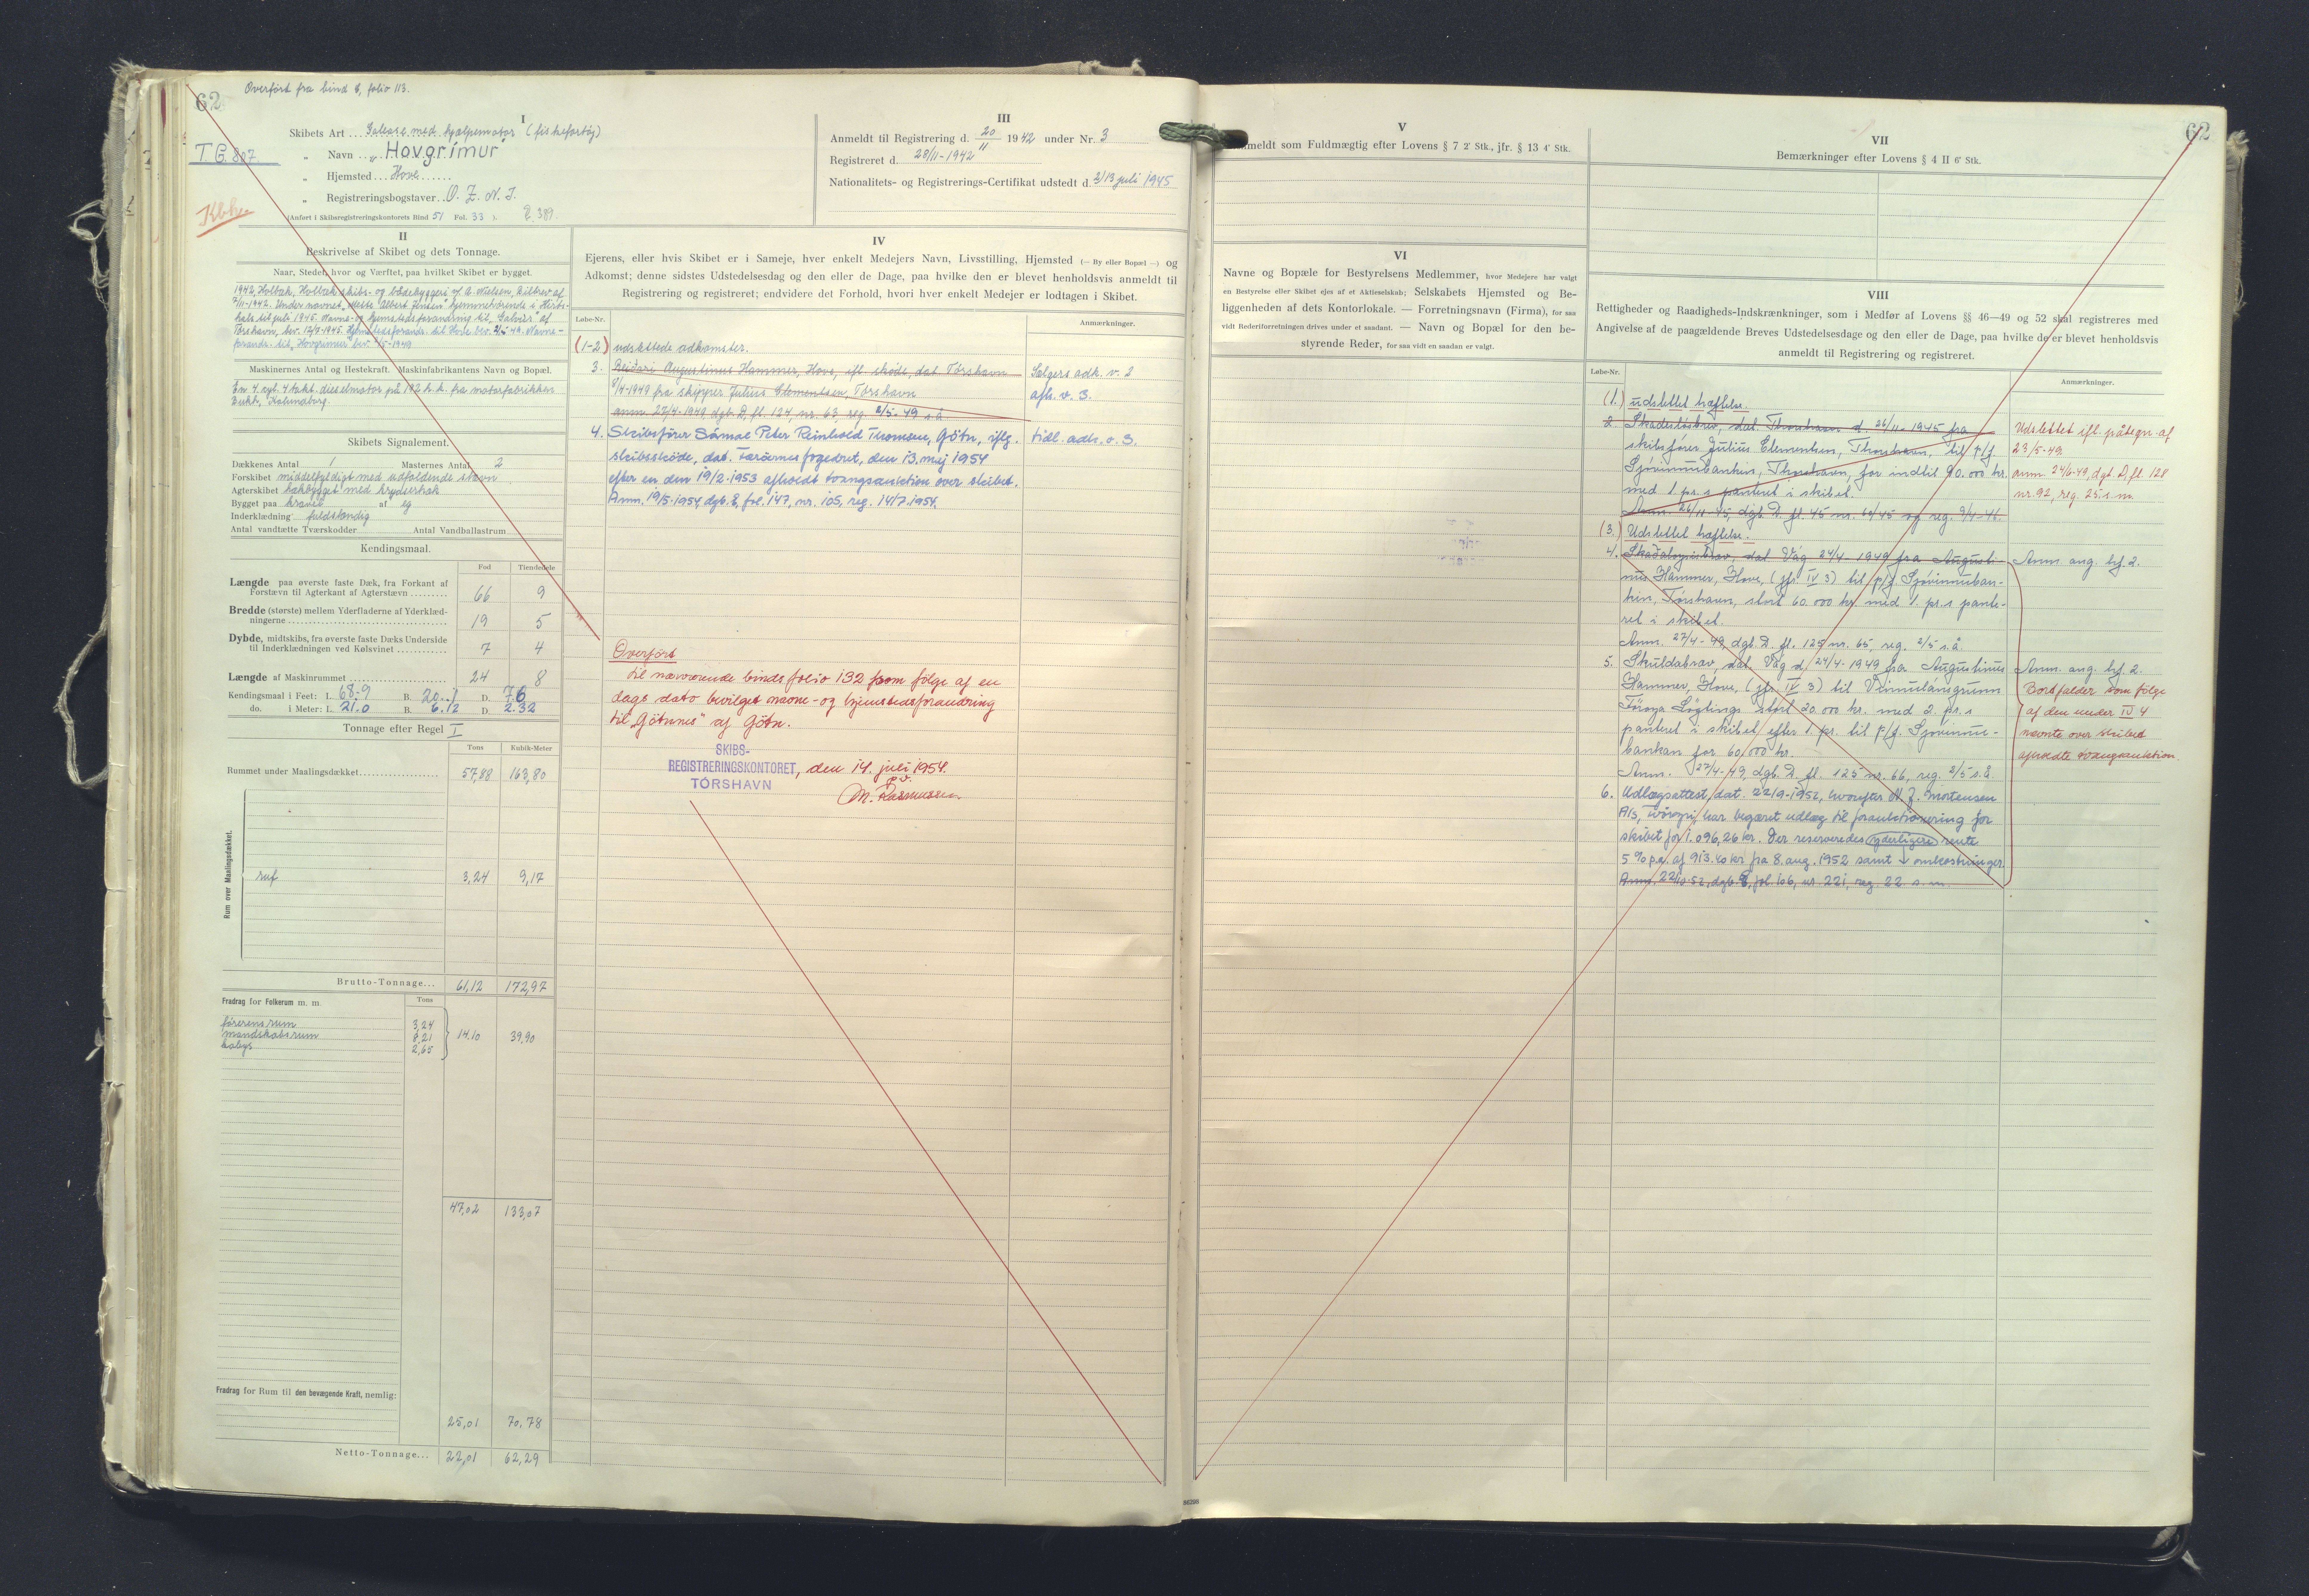 62
Overført fra bind 6, folio 113.
T G. 807
Kbh.
I
Skibets Art ... Galease med hjælpemotor (fiskefartøj)
" Navn .. „Hovgrímur"
" Hjemsted ... Hove ......
" Registreringsbogstaver .. O. Z. N. I.
(Anført i Skibsregistreringskontorets Bind 51 Fol. 33 ).
III
Anmeldt til Registrering d. 20/11 1942 under Nr. 3
Registreret d. 28/11-1942
Nationalitets- og Registrerings-Certifikat udstedt d. 2/13 juli 1945
II
Beskrivelse af Skibet og dets Tonnage.
Naar, Stedet, hvor og Værftet, paa hvilket Skibet er bygget.
1942, Holbæk, Holbæk skibs- og bådebyggeri v/ A. Nielsen, bilbrev af
7/11-1942. Under navnet „Mette Albert Jensen" hjemmehørende i Hirts-
hals til juli 1945. Navne- og hjemstedsforandring til „Galvur" af
Tórshavn, bev. 12/7-1945. Hjemstedsforandr. til Hove bev. 2/5-49. Navne-
forandr. til „Hovgrímur" bev. 2/5-1949
Maskinernes Antal og Hestekraft. Maskinfabrikantens Navn og Bopæl.
En 4 cyl. 4 takt. dieselmotor på 192 h.k. fra motorfabrikken
Bukh, Kalundborg.
Skibets Signalement.
Dækkenes Antal 1 Masternes Antal 2
Forskibet middelfyldigt med udfaldende stævn
Agterskibet hækbygget med krydserhæk
Bygget paa kravel af eg
Inderklædning fuldstændig
Antal vandtætte Tværskodder Antal Vandballastrum
Kendingsmaal.
Fod Tiendedele
Længde paa øverste faste Dæk, fra Forkant af
Forstævn til Agterkant af Agterstævn ......... 66 9
Bredde (største) mellem Yderfladerne af Yderklæd-
ningerne ........ 19 5
Dybde, midtskibs, fra øverste faste Dæks Underside
til Inderklædningen ved Kølsvinet ............ 7 4
Længde af Maskinrummet ........ 24 8
Kendingsmaal i Feet: L. 68.9 B. 20.1 D. 7.6
do. i Meter: L. 21.0 B. 6.12 D. 2.32
Tonnage efter Regel I
Tons Kubik-Meter
Rummet under Maalingsdækket.................. 57,88 163,80
Rum over Maalingsdækket.
ruf 3,24 9,17
Brutto-Tonnage... 61,12 172,97
Fradrag for Folkerum m. m. Tons
førerens rum 3,24
mandskabsrum 8,21 14.10 39,90
kabys 2,65
47,02 133,07
Fradrag for Rum til den bevægende Kraft, nemlig:
25,01 70,78
Netto-Tonnage... 22,01 62,29
IV
Ejerens, eller hvis Skibet er i Sameje, hver enkelt Medejers Navn, Livsstilling, Hjemsted (— By eller Bopæl —) og
Adkomst; denne sidstes Udstedelsesdag og den eller de Dage, paa hvilke den er blevet henholdsvis anmeldt til
Registrering og registreret; endvidere det Forhold, hvori hver enkelt Medejer er lodtagen i Skibet.
Løbe-Nr. Anmærkninger.
(1-2) udslettede adkomster.
3. Reiðari Augustinus Hammer, Hove, ifl. skøde, dat. Tórshavn Sælgers adk. v. 2
8/4-1949 fra skipper Julius Clementsen, Tórshavn afl. v. 3.
anm. 27/4-1949, dgb. D, fl. 124, nr. 63, reg. 2/5-49 s.å.
4. Skibsfører Sámal Peter Reinhold Thomsen, Götu, iflg. tidl. adk. v. 3.
skibsskøde, dat. Færøernes fogedret, den 13. maj 1954
efter en den 19/2-1953 afholdt tvangsauktion over skibet.
Anm. 19/5-1954, dgb. E, fol. 147, nr. 105, reg. 14/7-1954.
Overført
til nærværende binds folio 132 som følge af en
dags dato bevilget navne- og hjemstedsforandring
til „Götunes" af Götu.
SKIBS-
REGISTRERINGSKONTORET, den 14. juli 1954.
TÓRSHAVN p.v.
M. Rasmussen
V
Anmeldt som Fuldmægtig efter Lovens § 7 2' Stk., jfr. § 13 4' Stk.
VI
Navne og Bopæle for Bestyrelsens Medlemmer, hvor Medejere har valgt
en Bestyrelse eller Skibet ejes af et Aktieselskab; Selskabets Hjemsted og Be-
liggenheden af dets Kontorlokale. — Forretningsnavn (Firma), for saa
vidt Rederiforretningen drives under et saadant. — Navn og Bopæl for den be-
styrende Reder, for saa vidt en saadan er valgt.
62
VII
Bemærkninger efter Lovens § 4 II 6' Stk.
VIII
Rettigheder og Raadigheds-Indskrænkninger, som i Medfør af Lovens §§ 46—49 og 52 skal registreres med
Angivelse af de paagældende Breves Udstedelsesdage og den eller de Dage, paa hvilke de er blevet henholdsvis
anmeldt til Registrering og registreret.
Løbe-Nr. Anmærkninger.
(1.) udslettet hæftelse.
2. Skadesløsbrev, dat. Thorshavn d. 26/11-1945 fra Udslettet ifl. påtegn. af
skibsfører Julius Clementsen, Thorshavn, til P/f. 23/5-49,
Sjóvinnubankin, Thorshavn, for indtil 90.000 kr. anm. 24/6-49, dgb. D, fl. 128
med 1. pr.s panteret i skibet. nr. 92, reg. 25. s.m.
Anm. 26/11-45, dgb. D. fl. 45 nr. 60/45 og reg. 9/4-46.
(3.) Udslettet hæftelse.
4. Skaðaloysisbrav, dat. Våg 24/4-1949 fra Augusti- Anm. ang. bf. 2.
nus Hammer, Hove, (jfr. IV 3) til p/f. Sjóvinnuban-
kin, Tórshavn, stort 60.000 kr. med 1. pr.s pante-
ret i skibet.
Anm. 27/4-49, dgb. D. fl. 125 nr. 65, reg. 2/5 s.å.
5. Skuldabrav, dat. Våg d. 24/4-1949 fra Augustinus Anm. ang. bf. 2.
Hammer, Hove, (jfr. IV 3) til Vinnulánsgrunn Bortfalder som følge
Føroya Løgtings stort 20.000 kr. med 2. pr.s af den under IV 4
panteret i skibet, efter 1. pr. til p/f. Sjóvinnu- nævnte over skibet
bankan for 60,000 kr. afholdte tvangsauktion.
Anm. 27/4-49, dgb. D. fl. 125 nr. 66, reg. 2/5 s.å.
6. Udlægsattest, dat. 22/9-1952, hvorefter N. J. Mortensen
A/S, Tvøroyri, har begæret udlæg til forauktionering for
skibet for 1.096,26 kr. Der reserveredes yderligere rente
5 % p.a. af 913.40 kr. fra 8. aug. 1952 samt omkostninger.
Anm. 22/10-52, dgb. E, fol. 106, nr. 221, reg. 22 s.m.